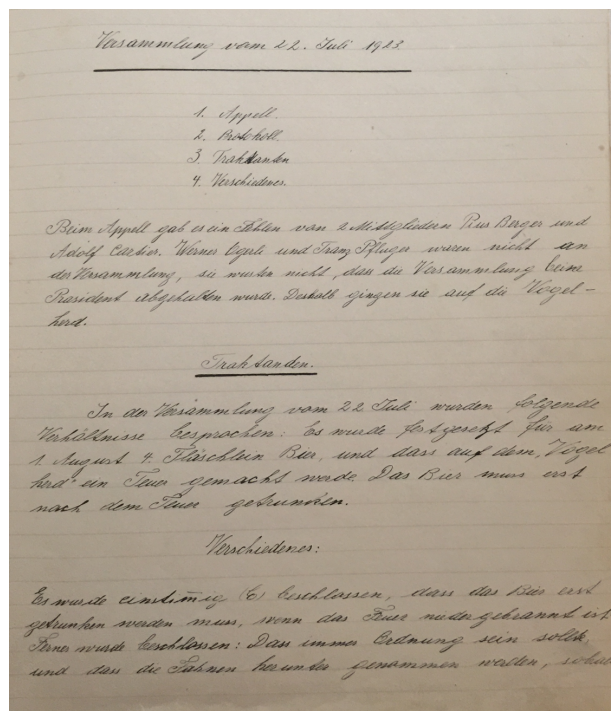 Versammlung vom 22. Juli 1923.
1. Appell.
2. Protokoll.
3. Traktanden
4. Verschiedenes.
Beim Appell gab es ein Fehlen von 2 Mittgliedern Pius Berger und
Adolf Cartier. Werner Ugerli und Franz Pfluger waren nicht an
der Versammlung, sie wusten nicht, dass die Versammlung beim
Präsident abgehalten wurde. Deshalb gingen sie auf die Vogel-
herd.
Traktanden.
In der Versammlung vom 22 Juli wurden folgende
Verhältnisse besprochen: Es wurde festgesetzt für am
1. August 4. Fläschlein Bier, und dass auf dem "Vogel
herd" ein Feuer gemacht werde. Das Bier muss erst
nach dem Feuer getrunken.
Verschiedenes:
Es wurde einstimmig (6) beschlossen, dass das Bier erst
getrunken werden muss, wenn das Feuer niedergebrannt ist
Ferner wurde beschlossen: Dass immer Ordnung sein sollte,
und dass die Fahnen herunter genommen werden, sobal